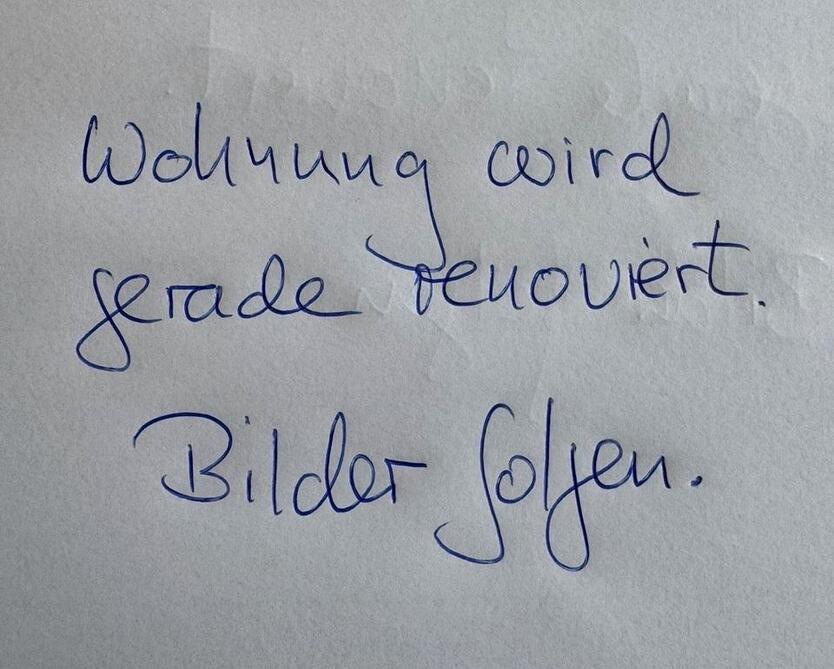 Wohnung wird
gerade renoviert.
Bilder folgen.